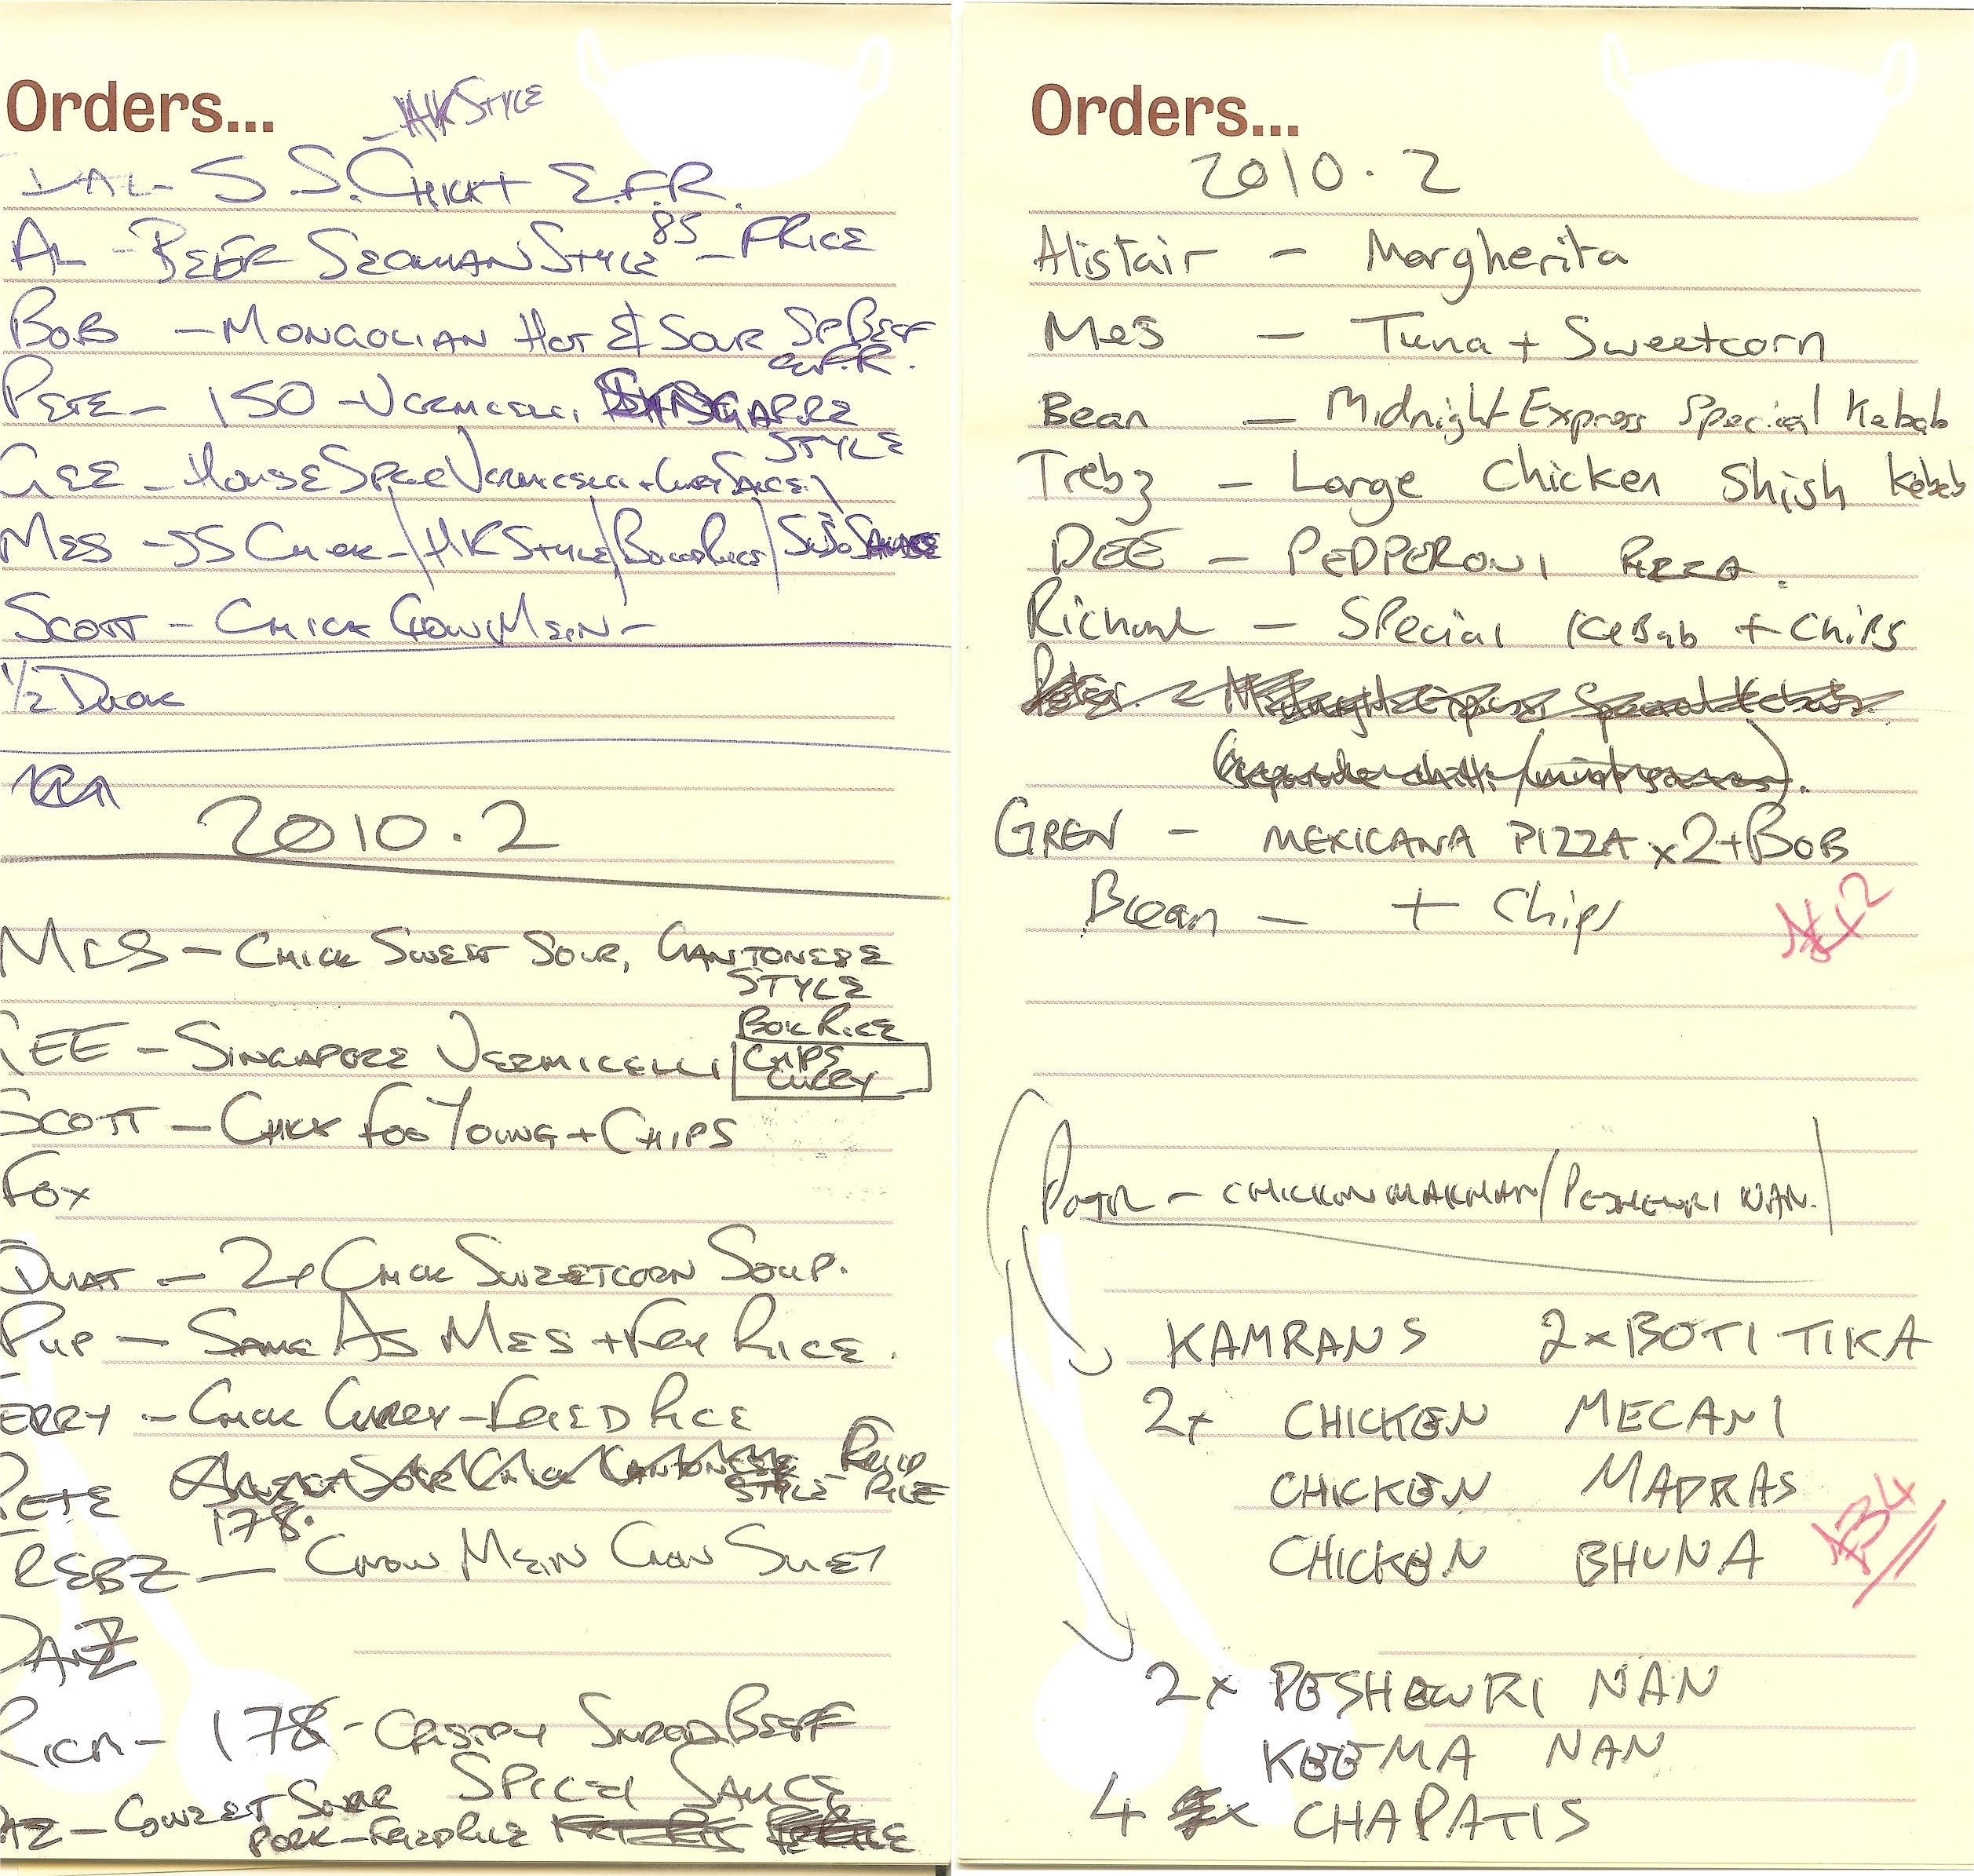 Orders...
STYLE
S.S. CHICK + E.F.R.
AL - BEEF SECHUAN STYLE 85 - FRICE
BOB - MONGOLIAN HOT & SOUR BEEF
E.F.R.
PETE - 150 - VERMICELLI SINGAPORE
STYLE
GEE - HOUSE SPEC VERMICELLI + CURRY SAUCE
MES - SS CHICK - / HK STYLE / BOILED RICE / SAUCE
SCOTT - CHICK CHOW MEIN -
1/2 DUCK
2010.2
MES - CHICK SWEET SOUR, CANTONESE
STYLE
BOIL RICE
GEE - SINGAPORE VERMICELLI CHIPS
CURRY
SCOTT - CHICK FOO YOUNG + CHIPS
FOX
- 2x CHICK SWEETCORN SOUP.
PUP - SAME AS MES + FRY RICE.
ERRY - CHICK CURRY - FRIED RICE
PETE SWEET SOUR CHICK CANTONESE
STYLE FRIED RICE
178.
TREBZ - CHOW MEIN CHOW SUEY
DANZ
RICH - 178 - CRISPY SHRED BEEF
SPICEY SAUCE
AZ - SWEET SOUR
PORK - FRIED RICE
Orders...
2010.2
Alistair - Margherita
Mes - Tuna + Sweetcorn
Bean - Midnight Express Special Kebab
Trebz - Large Chicken Shish Kebab
DEE - PEPPERONI PIZZA.
Richard - SPecial KeBab + ChiPs
Peter - Midnight Express Special Kebab
(separate chilli/mint sauces).
GREN - MEXICANA PIZZA x2 + BOB
Bean - + Chips
PETER - CHICKEN MAKHAN / PESHEWRI NAN.
KAMRANS 2x BOTI TIKA
2x CHICKEN MECANI
CHICKEN MADRAS
CHICKEN BHUNA
2x PESHEWRI NAN
KEEMA NAN
4 x CHAPATIS